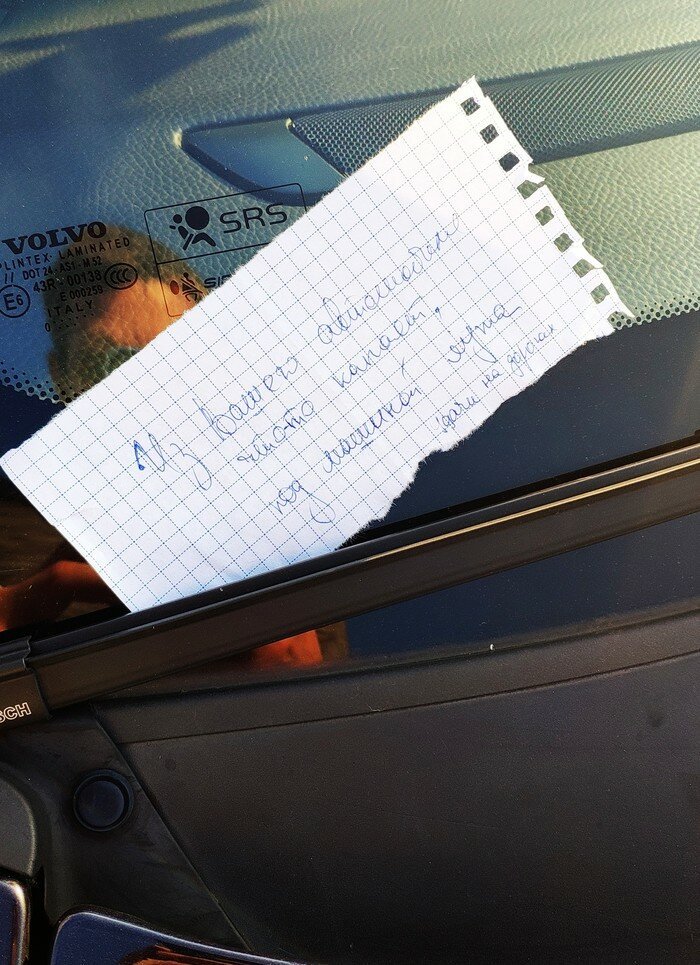 VOLVO
SPLINTEX LAMINATED
// DOT24 AS1 M52
E6 43R-00138 CCC
E 000259
ITALY
SRS
Из Вашего автомобиля
что-то капает,
под машиной лужа
удачи на дорогах
SCH